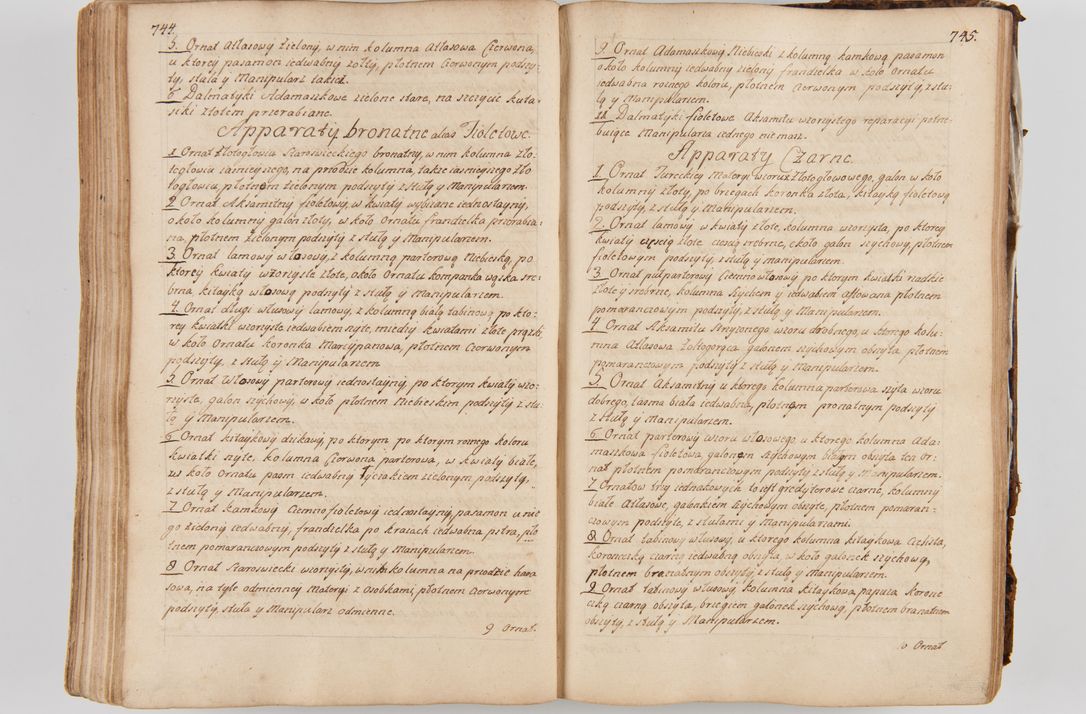 744.
5. Ornat Atlasowy Zielony, w nim kolumna Atlasowa Czerwona,
u ktorey pasamon iedwabny żołty, płotnem Czerwonym podszy-
ty, stuła y Manipularz takież.
6 Dalmatyki Adamaszkowe zielone stare, na szczycie kuta-
siki złotem przerabiane.
Apparaty bronatne alias Fioletowe.
1 Ornat złotogłowiu Staroswieckiego bronatny, w nim kolumna zło-
togłowiu iasnieyszego, na przodzie kolumna, także iasnieyszego zło
togłowiu, płotnem zielonym podszyty z stułą y Manipularzem.
2 Ornat Aksamitny fioletowy, w kwiaty wybijane iednostayny,
około kolumny galon złoty, w koło Ornatu frandzelka przerabia-
na, płotnem zielonym podszyty z stułą y Manipularzem.
3. Ornat lamowy włosowy, z kolumną parterową Niebieską, po
ktorey kwiaty wzorzyste złote, około Ornatu kompanka wązka sre-
brna kitayką włosową podszyty z stułą y Manipularzem.
4. Ornat długi włusowy lamowy, z kolumną białą tabinową po kto-
rey kwiatki wzorzyste iedwabiem szyte, między kwiatami złote prążki,
w koło Ornatu koronka Marcypanowa, płotnem Czerwonym
podszyty, z stułą y Manipularzem
5. Ornat Włosowy parterowy iednostayny, po ktorym kwiaty wzo-
rzyste, galon szychowy, w koło płotnem Niebieskim podszyty z stu-
łą y Manipularzem.
6 Ornat kitaykowy dzikawy, po ktorym po ktorym roznego koloru
kwiatki szyte, kolumna Czerwona parterowa, w kwiaty białe,
w koło Ornatu pasm iedwabny Tyciakiem zielonym podszyty,
z stułą y Manipularzem.
7 Ornat kamkowy Ciemno fioletowy iednostayny, pasamon u nie
go zielony iedwabny, frandzelka po kraiach iedwabna pstra, pło
tnem pomaranczowym podszyty z stułą y Manipularzem.
8 Ornat Staroswiecki wzorzysty, w nim kolumna na przodzie hara
sowa, na tyle odmienney Materyi z Osobkami, płotnem Czerwonym
podszyty, stuła y Manipularz odmienne.
9 Ornat.
745.
9. Ornat Adamaszkowy Niebieski z kolumną kamkową pasamon
około kolumny iedwabny zielony frandzelka w koło Ornatu
iedwabna roznego koloru, płotnem Czerwonym podszyty, z stu-
łą y Manipularzem.
11. Dalmatyki fioletowe Aksamitu wzorzystego reparacyi potrze-
buiące Manipularza iednego niemasz.
Apparaty Czarne.
1 Ornat Tureckiey Materyi wzorux złotogłowowego, galon w koło
kolumny złoty, po brzegach koronka złota, kitayką fioletową
podszyty, z stułą y Manipularzem.
2. Ornat lamowy w kwiaty złote, kolumna wzorzysta, po ktorey
kwiaty częscią złote częscią srebrne, około galon szychowy, płotnem
fioletowym podszyty, z stułą y manipularzem.
3. Ornat pułparterowy Ciemno włosowy po ktorym kwiatki nadzkie
złote y srebrne, kolumna szychem y iedwabiem Aftowana płotnem
pomaranczowym podszyty, z stułą y Manipularzem.
4. Ornat Aksamitu strzyżonego wzoru drobnego, u ktorego kolu-
mna Atlasowa żołtogorąca galonem szychowym obszyta, płotnem
pomaranczowym podszyty z stułą y Manipularzem.
5. Ornat Aksamitny u ktorego kolumna parterowa szyta wzoru
dobrego, tasma biała iedwabna, płotnem bronatnym podszyty
z stułą y Manipularzem.
6. Ornat parterowy wzoru włosowego u ktorego kolumna Ada-
maszkowa fioletowa, galonem szychowym białym obszyta ten Or-
nat płotnem pomoranczowym podszyty z stułą y Manipularzem.
7 Ornatow trzy iednakowych to iest gredyterowe czarne, kolumny
białe Atłasowe, galonkiem szychowym obszyte, płotnem pomaran-
czowym podszyte, z stułami y Manipularzami.
8 Ornat tabinowy włusowy, u ktorego kolumna kitaykowa Cielista,
koroneczką czarną iedwabną obszyta, w koło galonek szychowy,
płotnem branatnym obszyty, z stułą y Manipularzem.
9 Ornat tabinowy włusowy, kolumna kitaykowa papuza korone-
czką czarną obszyta, brzegiem galonek szychowy, płotnem branatnem
obszyty, z stułą y Manipularzem.
10 Ornat